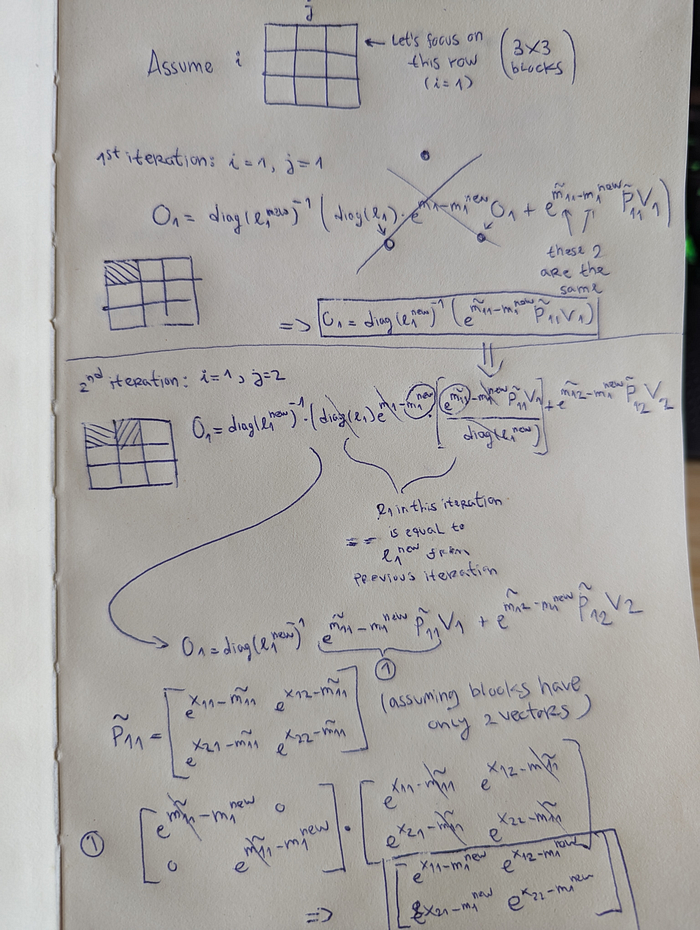 j
Assume i
← Let's focus on
this row
(i=1)
(3×3
blocks)
1st iteration: i=1, j=1
O₁ = diag(ℓ₁^new)⁻¹ (diag(ℓ₁) · e^(m₁-m₁^new) O₁ + e^(m̃₁₁-m₁^new) P̃₁₁V₁)
these 2
are the
same
=> O₁ = diag(ℓ₁^new)⁻¹ (e^(m̃₁₁-m₁^new) P̃₁₁V₁)
2nd iteration: i=1, j=2
O₁ = diag(ℓ₁^new)⁻¹ · (diag(ℓ₁) e^(m₁-m₁^new) · [e^(m̃₁₁-m₁^new) P̃₁₁V₁ / diag(ℓ₁^new)] + e^(m̃₁₂-m₁^new) P̃₁₂V₂
ℓ₁ in this iteration
== is equal to
ℓ₁^new from
previous iteration
O₁ = diag(ℓ₁^new)⁻¹ e^(m̃₁₁-m₁^new) P̃₁₁V₁ + e^(m̃₁₂-m₁^new) P̃₁₂V₂
①
P̃₁₁ = [e^(x₁₁-m̃₁₁) e^(x₁₂-m̃₁₁)
e^(x₂₁-m̃₁₁) e^(x₂₂-m̃₁₁)]
(assuming blocks have
only 2 vectors)
① [e^(m̃₁₁-m₁^new) 0
0 e^(m̃₁₁-m₁^new)]
· [e^(x₁₁-m̃₁₁) e^(x₁₂-m̃₁₁)
e^(x₂₁-m̃₁₁) e^(x₂₂-m̃₁₁)]
=> [e^(x₁₁-m₁^new) e^(x₁₂-m₁^new)
e^(x₂₁-m₁^new) e^(x₂₂-m₁^new)]